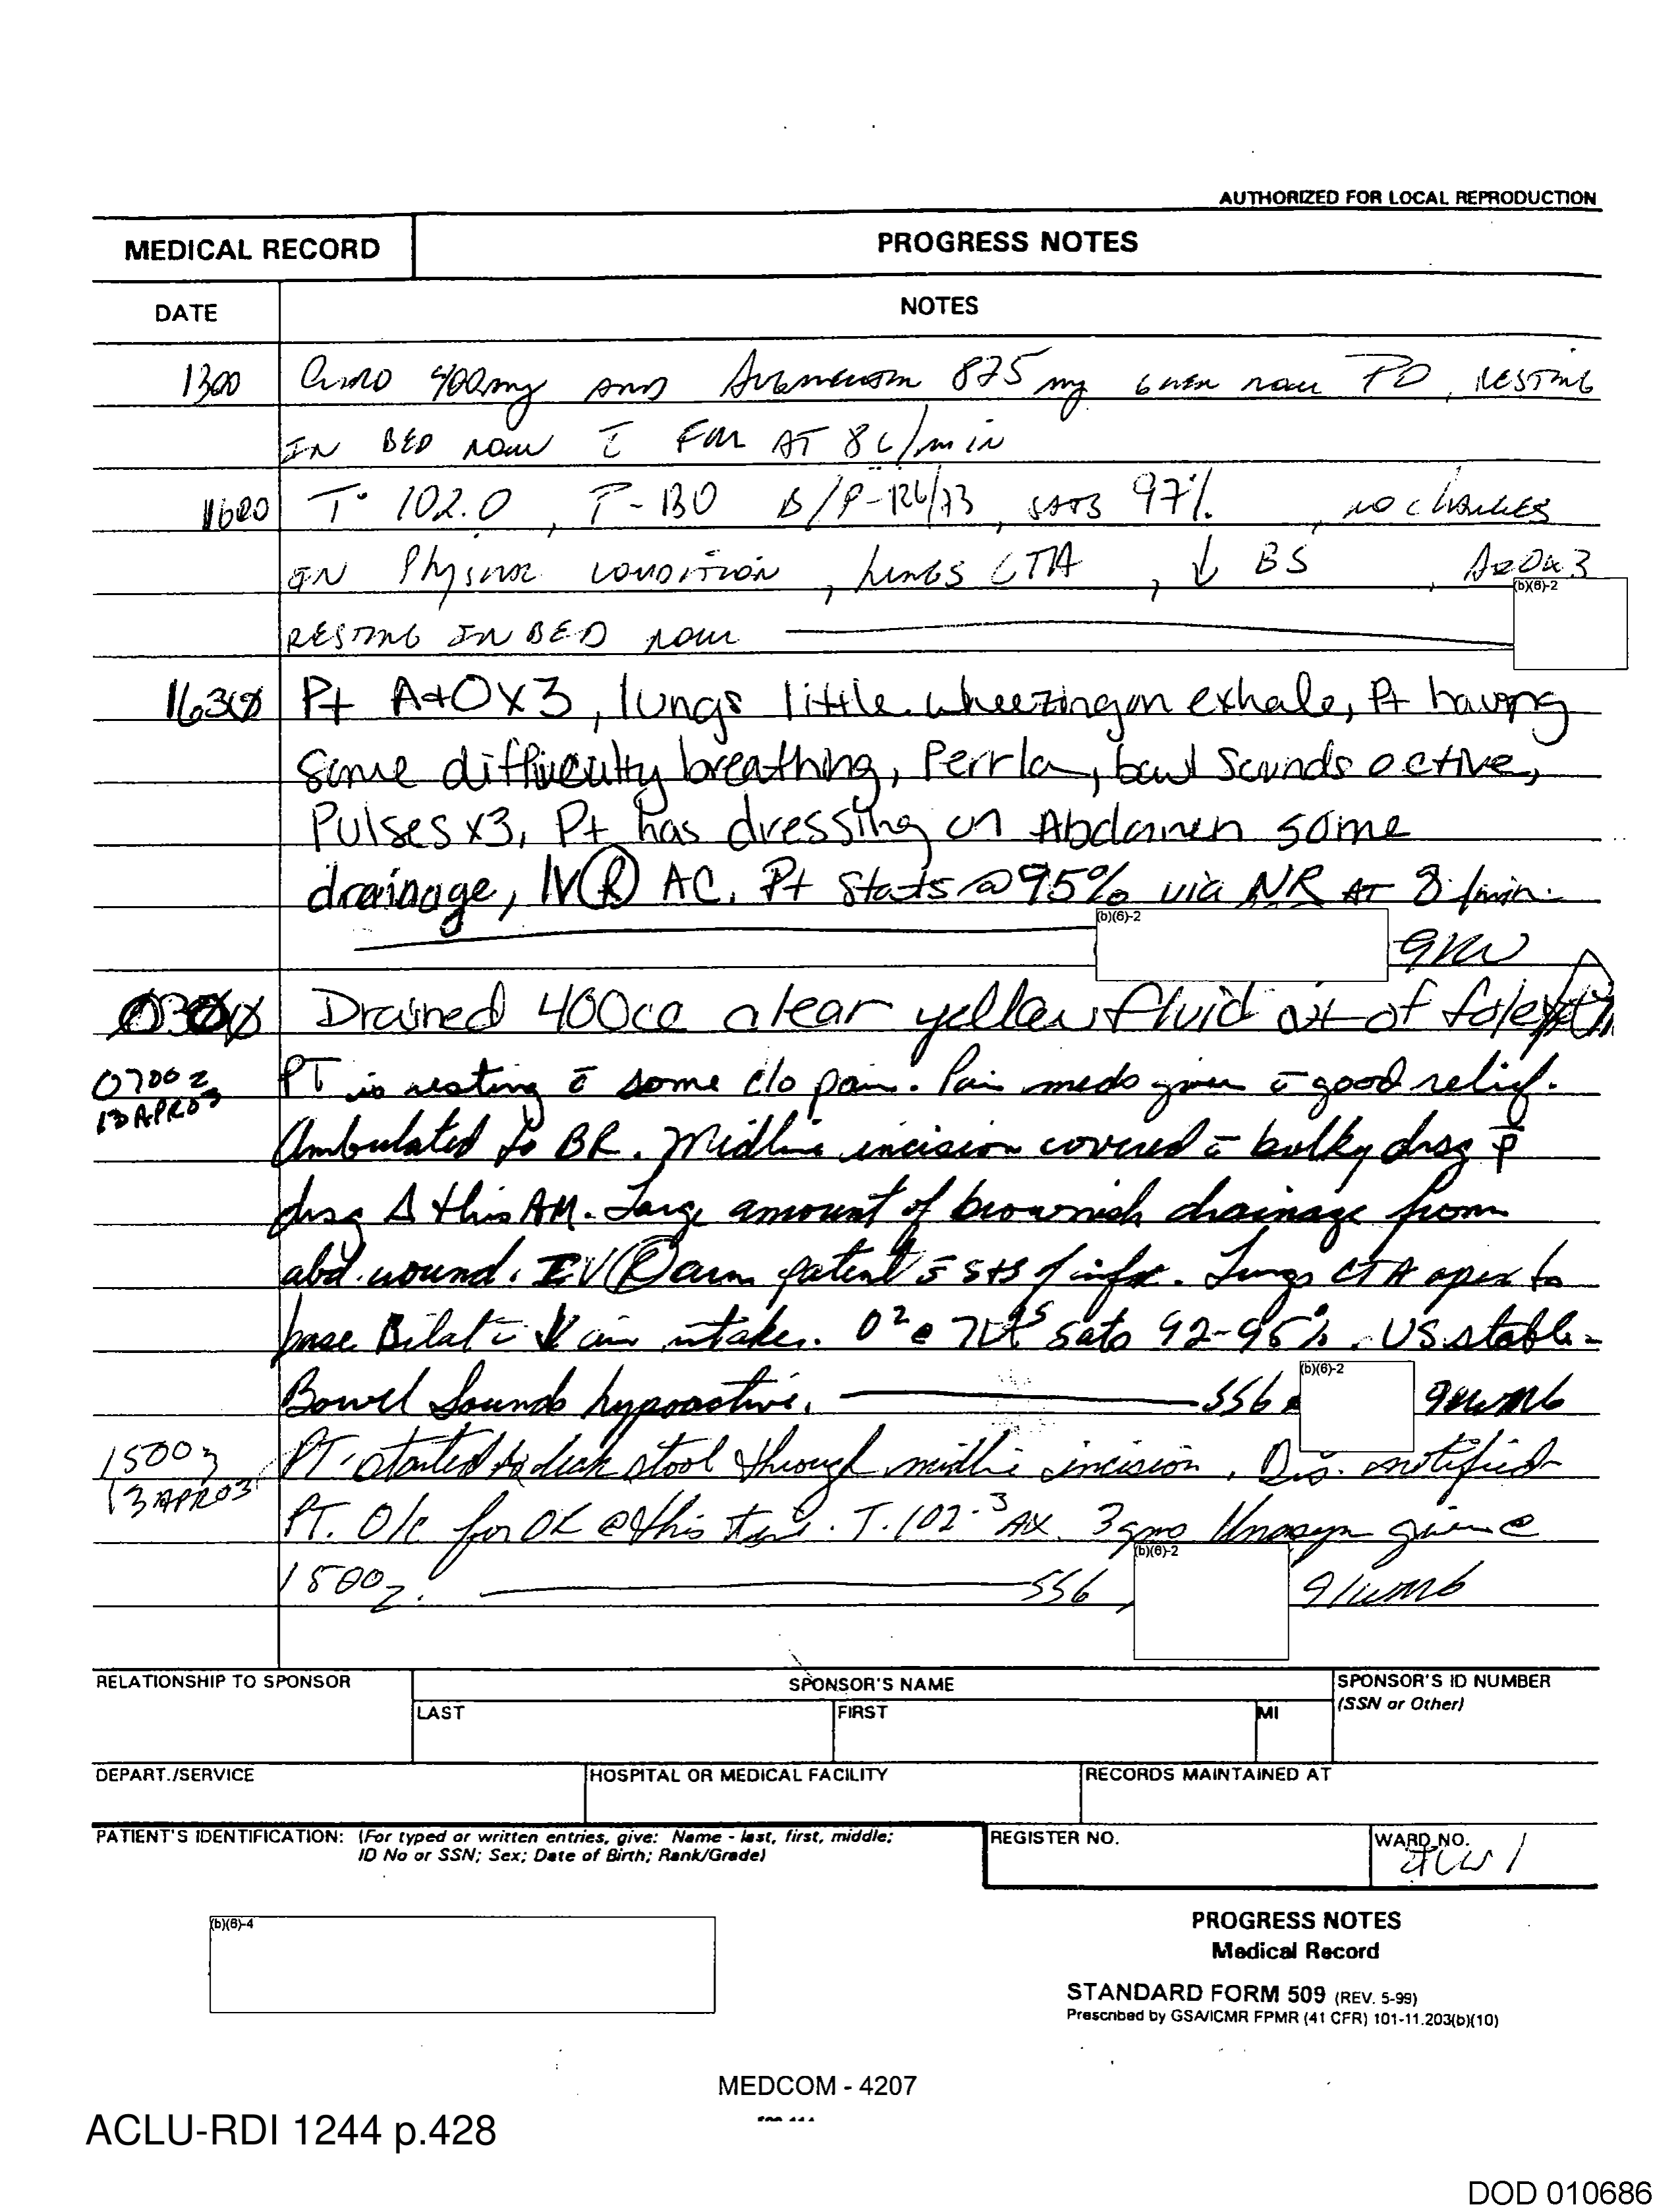 AUTHORIZED FOR LOCAL REPRODUCTION
MEDICAL RECORD
PROGRESS NOTES
DATE
NOTES
1300 Cipro 400mg AND Augmentin 875 mg given now PO, RESTING
IN BED now c̄ FM AT 8L/min
1600 T° 102.0, P-130 B/P-126/73, SATS 97%, NO CHANGES
IN Physical CONDITION, LUNGS CTA, ↓ BS, A&Ox3
(b)(6)-2
RESTING IN BED now
1630 Pt A+OX3, lungs little wheezing on exhale, Pt having
some difficulty breathing, Perrla, bowl Sounds active,
Pulses x3, Pt has dressing on Abdomen some
drainage, IV Ⓡ AC, Pt Stats @ 95% via NR AT 8/min.
(b)(6)-2
Drained 400cc clear yellow fluid out of foley
0700z PT is resting c̄ some c/o pain. Pain meds given c̄ good relief.
13APR03
Ambulated to BR. Midline incision covered c̄ bulky drsg p̄
drsg Δ this AM. Large amount of brownish drainage from
abd. wound. IV Ⓡ arm patent s̄ S+S of infx. Lungs CTA apex to
base Bilat c̄ ↓ air intake. O2 @ 7L sats 92-95%. VS stable-
Bowel Sounds hypoactive. SSG (b)(6)-2 91WM6
1500z PT started to leak stool through midline incision. Drs. notified
13APR03
PT. O/C for OR @ this time. T. 102.3 AX. 3gms Unasyn given @
1500z. SSG (b)(6)-2 91WM6
RELATIONSHIP TO SPONSOR
SPONSOR'S NAME
SPONSOR'S ID NUMBER
(SSN or Other)
LAST
FIRST
MI
DEPART./SERVICE
HOSPITAL OR MEDICAL FACILITY
RECORDS MAINTAINED AT
PATIENT'S IDENTIFICATION: (For typed or written entries, give: Name - last, first, middle;
ID No or SSN; Sex; Date of Birth; Rank/Grade)
REGISTER NO.
WARD NO.
ICW 1
(b)(6)-4
PROGRESS NOTES
Medical Record
STANDARD FORM 509 (REV. 5-99)
Prescribed by GSA/ICMR FPMR (41 CFR) 101-11.203(b)(10)
MEDCOM - 4207
ACLU-RDI 1244 p.428
DOD 010686